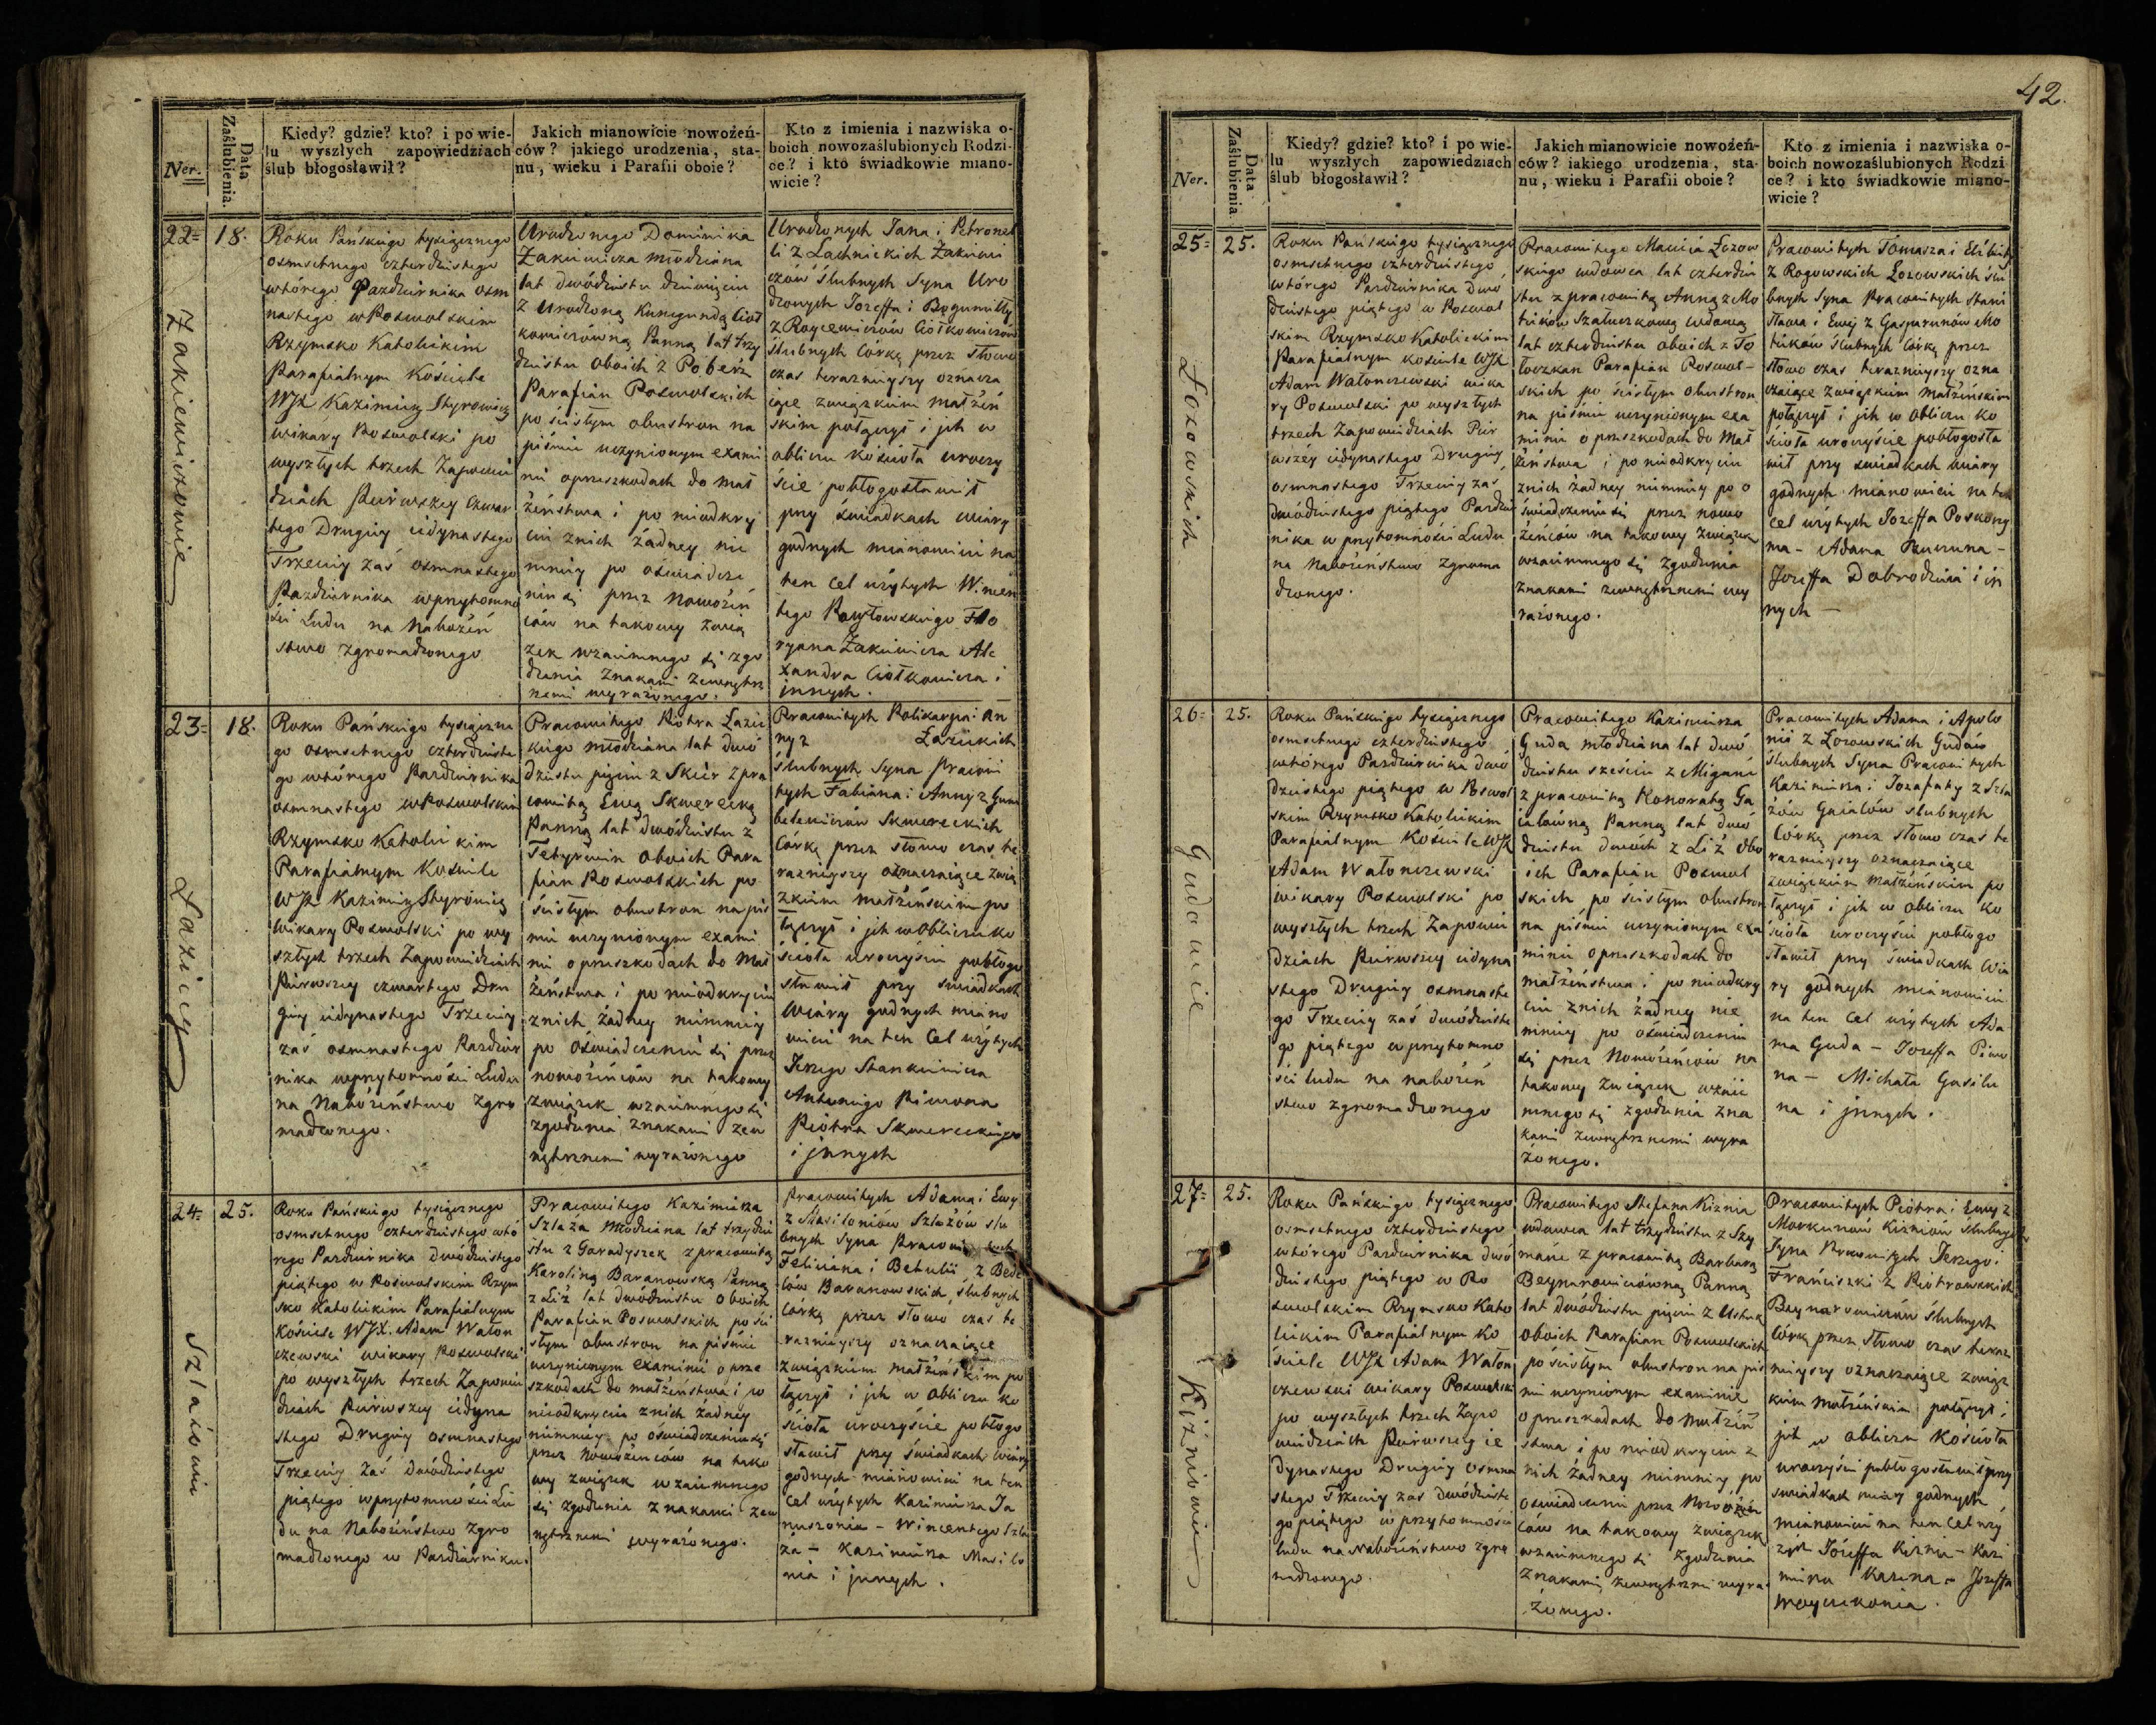 42.
Ner.
Data Zaślubienia.
Kiedy? gdzie? kto? i po wie-
lu wyszłych zapowiedziach
ślub błogosławił?
Jakich mianowicie nowożeń-
ców? jakiego urodzenia, sta-
nu, wieku i Parafii oboie?
Kto z imienia i nazwiska o-
boich nowozaślubionych Rodzi-
ce? i kto świadkowie miano-
wicie?
22=
18.
Żakiewiczowie
Roku Pańskiego tysiącznego
osmsetnego czterdziestego
wtórego Pazdziernika osm
nastego w Poswolskim
Rzymsko Katolickim
Parafialnym Kościele
WJX Kazimierz Styrowicz
wikary Poswolski po
wyszłych trzech Zapowie
dziach Pierwszey czwar
tego Drugiey iedynastego
Trzeciey zaś osmnastego
Pazdziernika w przytomno
ści Ludu na Nabożeń
stwo zgromadzonego
Urodzonego Dominika
Żakiewicza młodziana
lat dwódziestu dziewięciu
z Urodzoną Kunegundą Cioł
kowiczówną Panną lat trzy
dziestu oboich z Poberż
Parafian Poswolskich
po ścisłym obustron na
piśmie uczynionym exami
nie o przeszkodach do mał
żeństwa i po nieodkry
ciu z nich żadney nie
mniey po oświadcze
niu się przez Nowożeń
ców na takowy zwią
zek wzaiemnego się zgo
dzenia znakami zewnętrz
nemi wyrażonego.
Urodzonych Jana i Petronel
li z Lachnickich Żakiewi
czów Ślubnych Syna Uro
dzonych Jozeffa i Bogumiłły
z Roycewiczów Ciołkowiczów
Ślubnych Córkę przez słowo
czas teraznieyszy oznacza
iące związkiem małżeń
skim połączył i jch w
obliczu Kościoła uroczy
ście pobłogosławił
przy świadkach wiary
godnych mianowicie na
ten cel użytych Wincen
tego Pawłowskiego Flo
ryana Żakiewicza Ale
xandra Ciołkowicza i
jnnych.
23=
18.
Łaziccy
Roku Pańskiego tysiączne
go osmsetnego czterdzieste
go wtórego Pazdziernika
osmnastego w Poswolskim
Rzymsko Katolickim
Parafialnym Kościele
WJX Kazimierz Styrowicz
Wikary Poswolski po wy
szłych trzech Zapowiedziach
Pierwszey czwartego Dru
giey iedynastego Trzeciey
zaś osmnastego Pazdzier
nika w przytomności Ludu
na Nabożeństwo zgro
madzonego.
Pracowitego Piotra Łazic
kiego młodziana lat dwó
dziestu pięciu z Skier z pra
cowitą Ewą Skwerecką
Panną lat dwódziestu z
Tetyrwin oboich Para
fian Poswolskich po
ścisłym obustron na piś
mie uczynionym exami
nie o przeszkodach do Mał
żeństwa i po nieodkryciu
z nich żadney niemniey
po oświadczeniu się przez
nowożeńców na takowy
związek wzaiemnego się
zgodzenia znakami zew
nętrznemi wyrażonego
Pracowitych Polikarpa i An
ny z Łazickich
Ślubnych Syna Pracowi
tych Fabiana i Anny z Gum
belewiczów Skwereckich
Córkę przez słowo czas te
raznieyszy oznaczaiące zwią
zkiem małżeńskim po
łączył i jch w Obliczu ko
ścioła uroczyście pobłogo
sławił przy świadkach
Wiary godnych miano
wicie na ten Cel użytych
Jerzego Stankiewicza
Antoniego Piwona
Piotra Skwereckiego
i jnnych
24=
25.
Szlażowie
Roku Pańskiego tysiącznego
osmsetnego czterdziestego wtó
rego Pazdziernika dwódziestego
piątego w Poswolskim Rzym
sko Katolickim Parafialnym
Kościele WJX. Adam Waton
czewski wikary Poswolski
po wyszłych trzech Zapowie
dziach Pierwszey iedyna
stego Drugiey osmnastego
Trzeciey zaś dwódziestego
piątego w przytomności Lu
du na Nabożeństwo zgro
madzonego w Pazdzierniku.
Pracowitego Kazimierza
Szlaża Młodziana lat trzydzie
stu z Goradyszek z pracowitą
Karoliną Baranowską Panną
z Liż lat dwódziestu oboich
Parafian Poswolskich po ści
słym obustron na piśmie
uczynionym examinie o prze
szkodach do małżeństwa i po
nieodkryciu z nich żadney
niemniey po oświadczeniu się
przez Nowożeńców na tako
wy związek wzaiemnego
się zgodzenia znakami zew
nętrznemi wyrażonego.
Pracowitych Adama i Ewy
z Masiloniów Szlażów ślu
bnych Syna Pracowitych
Feliciana i Betulii z Bede
lów Baranowskich Ślubnych
Córkę przez słowo czas te
raznieyszy oznaczaiące
związkiem małżeńskim po
łączył i jch w Obliczu ko
ścioła uroczyście pobłogo
sławił przy świadkach wiary
godnych mianowicie na ten
cel użytych Kazimierza Ja
nuszonia - Wincentego Szla
ża - Kazimierza Masilo
nia i jnnych.
Ner.
Data Zaślubienia
Kiedy? gdzie? kto? i po wie-
lu wyszłych zapowiedziach
ślub błogosławił?
Jakich mianowicie nowożeń-
ców? iakiego urodzenia, sta-
nu, wieku i Parafii oboie?
Kto z imienia i nazwiska o-
boich nowozaślubionych Rodzi
ce? i kto świadkowie miano-
wicie?
25=
25.
Łozowskich
Roku Pańskiego tysiącznego
osmsetnego czterdziestego
wtórego Pazdziernika dwó
dziestego piątego w Poswol
skim Rzymsko Katolickim
Parafialnym kościele WJX
Adam Watonczewski wika
ry Poswolski po wyszłych
trzech Zapowiedziach Pier
wszey iedynastego Drugiey
osmnastego Trzeciey zaś
dwódziestego piątego Pazdzier
nika w przytomności Ludu
na Nabożeństwo zgroma
dzonego.
Pracowitego Macieia Łozow
skiego wdowca lat czterdzie
stu z pracowitą Anną z Mo
tuków Szałuczkową wdową
lat czterdziestu oboich z To
łoczkan Parafian Poswol-
skich po ścisłym obustron
na piśmie uczynionym exa
minie o przeszkodach do Mał
żeństwa i po nieodkryciu
z nich żadney niemniey po o
świadczeniu się przez nowo
żeńców na takowy związek
wzaiemnego się zgodzenia
znakami zewnętrznemi wy
rażonego.
Pracowitych Tomasza i Elżbiety
z Rogowskich Łozowskich ślu
bnych Syna Pracowitych Stani
sława i Ewy z Gasparunów Mo
tuków Ślubnych Córkę przez
słowo czas teraznieyszy ozna
czaiące związkiem małżeńskim
połączył i jch w Obliczu Ko
ścioła uroczyście pobłogosła
wił przy świadkach wiary
godnych mianowicie na ten
cel użytych Jozeffa
ma - Adama -
Jozeffa Dobrodzieia i in
nych -
26=
25.
Gudowie
Roku Pańskiego tysiącznego
osmsetnego czterdziestego
wtórego Pazdziernika dwó
dziestego piątego w Poswol
skim Rzymsko Katolickim
Parafialnym Kościele WJX
Adam Watonczewski
wikary Poswolski po
wyszłych trzech Zapowie
dziach Pierwszey iedyna
stego Drugiey osmnaste
go Trzeciey zaś dwódzieste
go piątego w przytomno
ści ludu na nabożeń
stwo zgromadzonego
Pracowitego Kazimierza
Guda młodziana lat dwó
dziestu sześciu z Migani
z pracowitą Konoratą Ga
ialówną Panną lat dwó
dziestu dwóch z Liż Obo
ich Parafian Poswol
skich po ścisłym obustron
na piśmie uczynionym exa
minie o przeszkodach do
małżeństwa i po nieodkry
ciu z nich żadney nie
mniey po oświadczeniu
się przez Nowożeńców na
takowy związek wzaie
mnego się zgodzenia zna
kami zewnętrznemi wyra
żonego.
Pracowitych Adama i Apolo
nii z Łozowskich Gudów
Ślubnych Syna Pracowitych
Kazimierza i Jozafaty z Szla
żów Gaialów ślubnych
Córkę przez słowo czas te
raznieyszy oznaczaiące
związkiem małżeńskim po
łączył i jch w obliczu ko
ścioła uroczyście pobłogo
sławił przy świadkach wia
ry godnych mianowicie
na ten cel użytych Ada
ma Guda - Jozeffa Piwo
na - Michała Gasilu
na i jnnych.
27=
25.
Kiżniowie
Roku Pańskiego tysiącznego
osmsetnego czterdziestego
wtórego Pazdziernika dwó
dziestego piątego w Po
swolskim Rzymsko Kato
lickim Parafialnym Ko
ściele WJX Adam Waton
czewski wikary Poswolski
po wyszłych trzech Zapo
wiedziach Pierwszey ie
dynastego Drugiey osmna
stego Trzeciey zaś dwódzieste
go piątego w przytomności
ludu na Nabożeństwo zgro
madzonego.
Pracowitego Stefana Kiżnia
wdowca lat trzydziestu z Szy
mani z pracowitą Barbarą
Beynarowiczówną Panną
lat dwódziestu pięciu z
oboich Parafian Poswolskich
po ścisłym obustron na piś
mie uczynionym examinie
o przeszkodach do małżeń
stwa i po nieodkryciu z
nich żadney niemniey po
oświadczeniu przez Nowożeń
ców na takowy związek
wzaiemnego się zgodzenia
znakami zewnętrznemi wyra
żonego.
Pracowitych Piotra i Ewy z
Morkunów Kiżniów Ślubnych
Syna Pracowitych Jerzego i
Franciszki z Piotrowskich
Beynarowiczów Ślubnych
Córkę przez słowo czas teraz
nieyszy oznaczaiące związ
kiem małżeńskim połączył i
jch w obliczu Kościoła
uroczyście pobłogosławił przy
świadkach wiary godnych
mianowicie na ten Cel uży
tych Jozeffa Kiżnia - Kazi
mierza Karena - Jozeffa